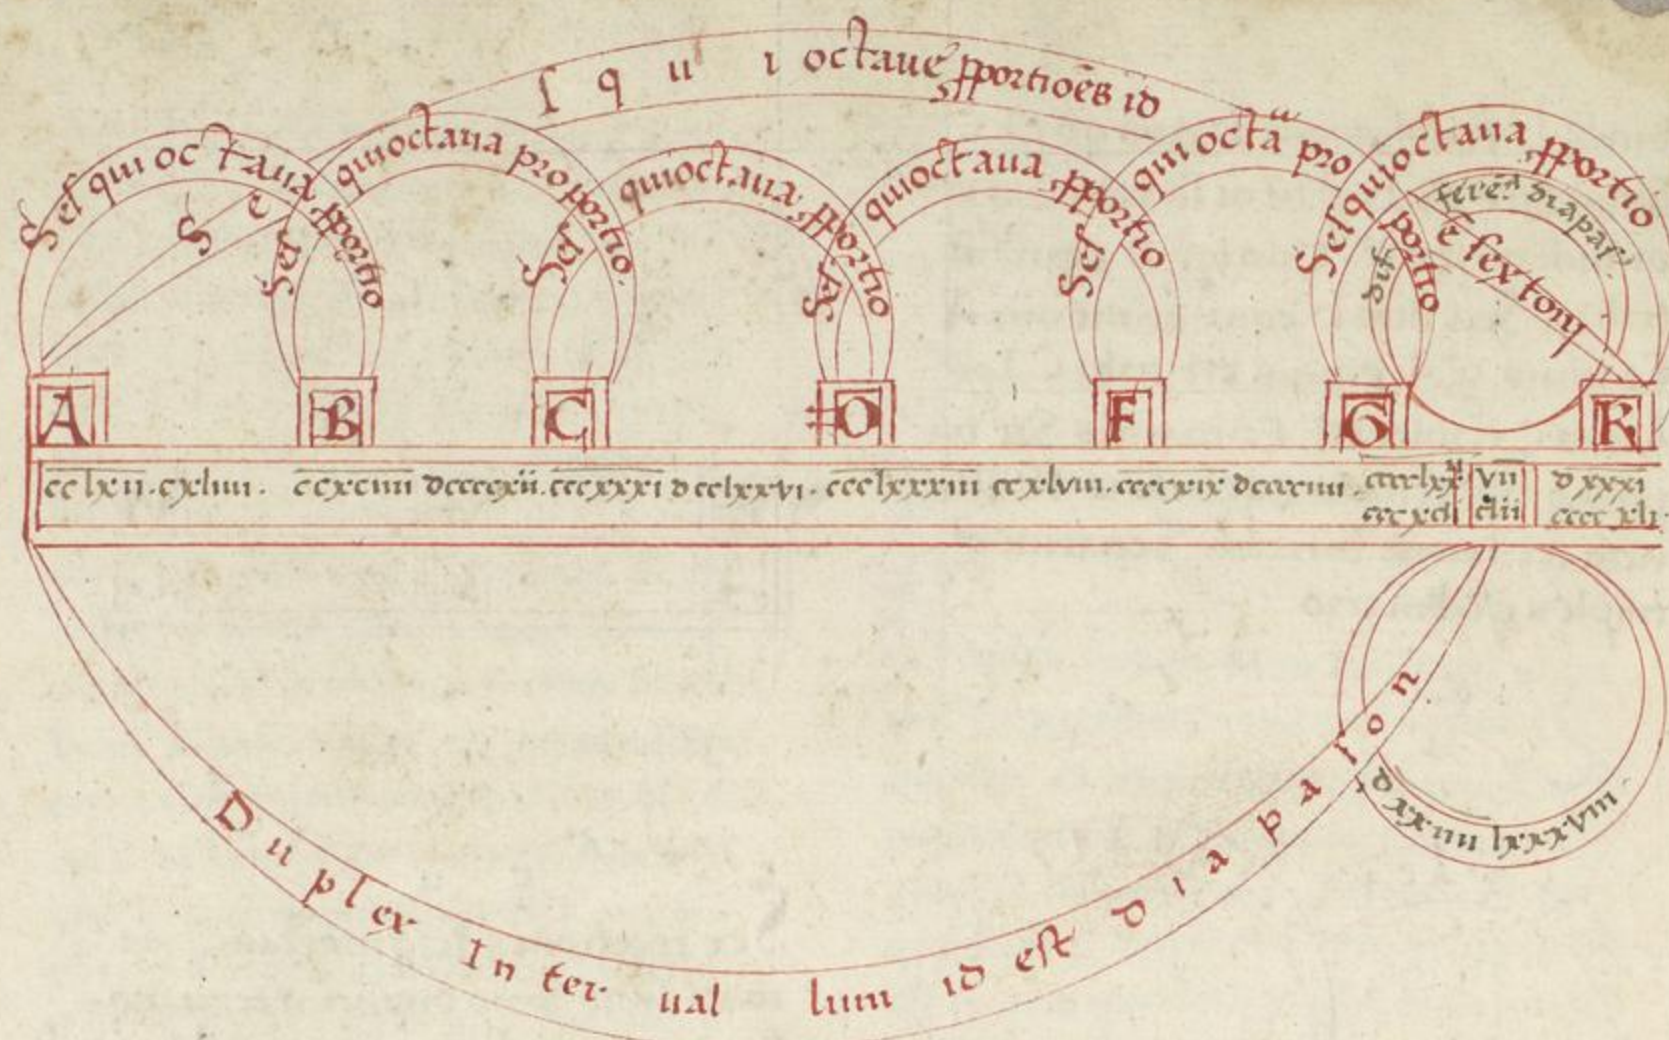 S e ſ q u i octaue ꝓportiões id ē sex toni
Seſquioctaua ꝓportio
Seſquioctaua proportio.
Seſquioctaua ꝓportio
Seſquioctaua ꝓportio
Seſquioctā proportio
Seſquioctaua ꝓportio
A B C D F G K
cclxii. cxliiii. ccxciiii dccccxii. cccxxxi dcclxxvi. ccclxxxiii ccxlviii. ccccxix dccciiii.
vii
clii
dxxxi
ccccxli.
Duplex Interuallum id est diapason
dxxiiii lxxxviii.